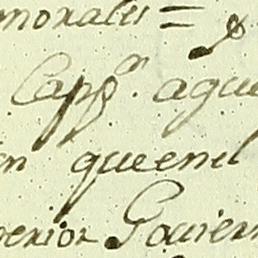 morales = &
Capp.ⁿ aque
en queenel
perior Goviern